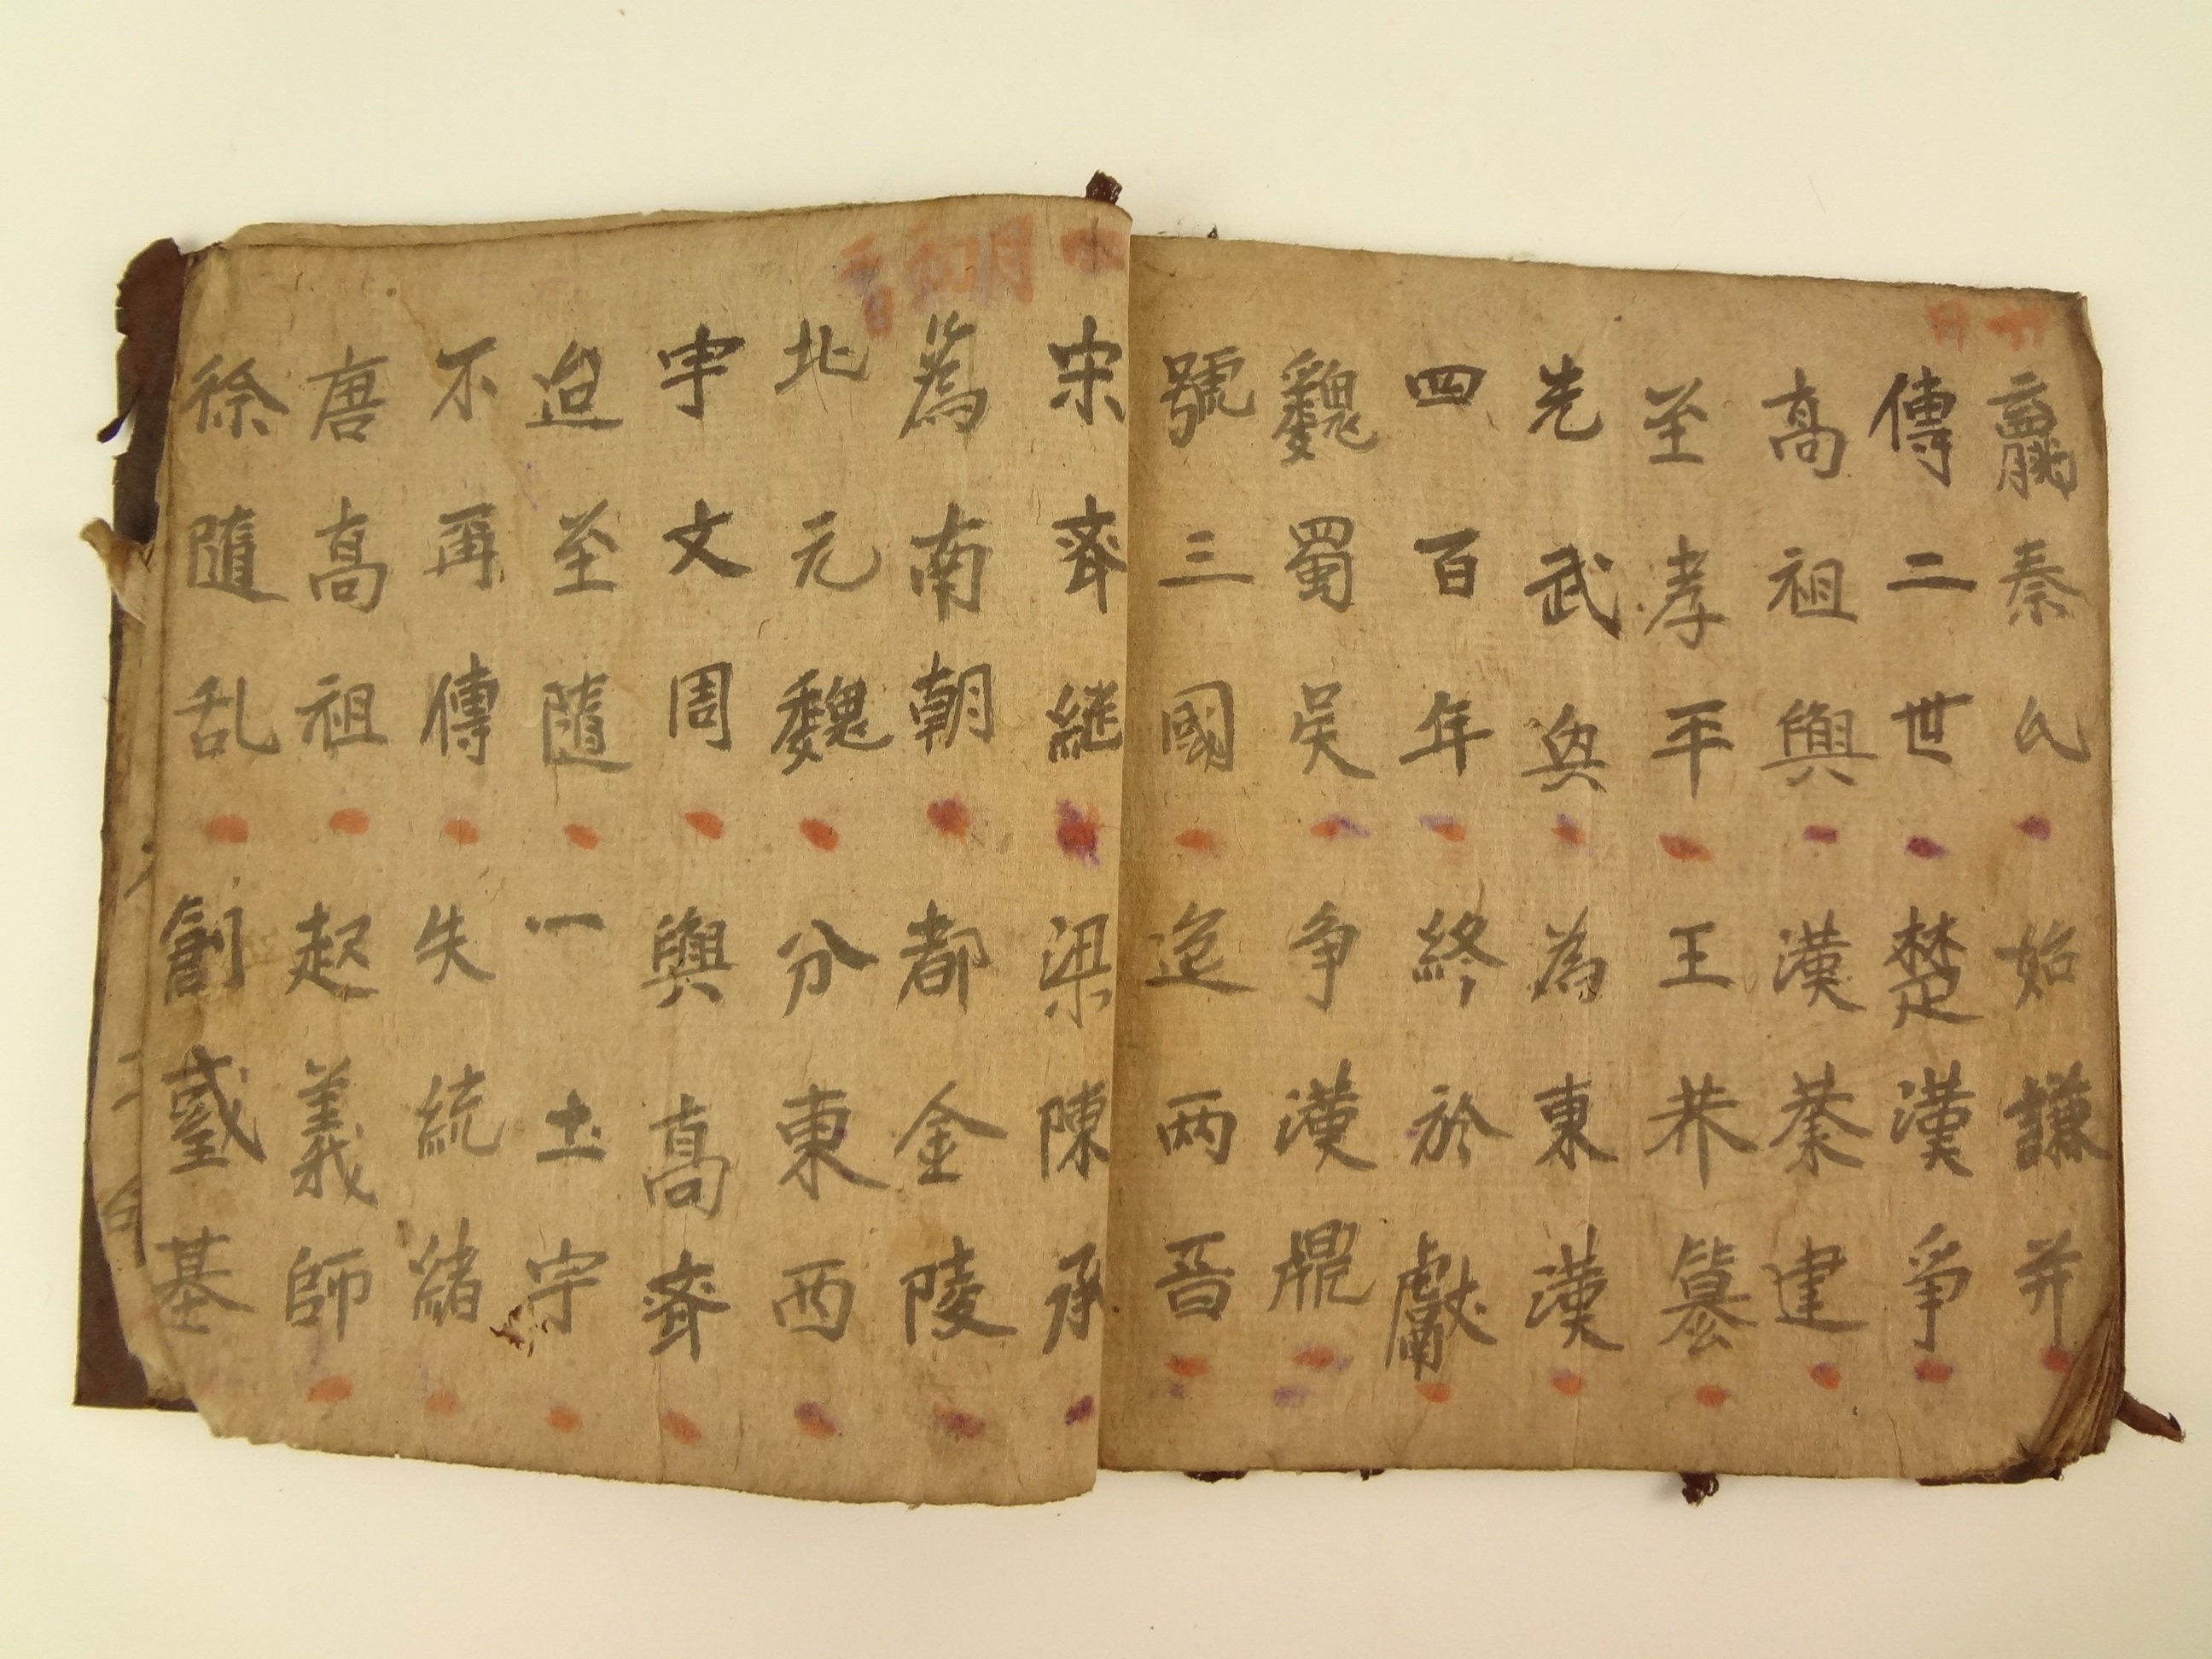 嬴秦氏 始謙并
傳二世 楚漢爭
高祖興 漢業建
至孝平 王莽篡
光武興 為東漢
四百年 終於獻
魏蜀吳 争漢鼎
號三國 迄兩晉
宋齊繼 梁陳承
為南朝 都金陵
北元魏 分東西
宇文周 興高齊
迨至隨 一土宇
不再傳 失統緒
唐高祖 起義師
徐隨乱 創國基